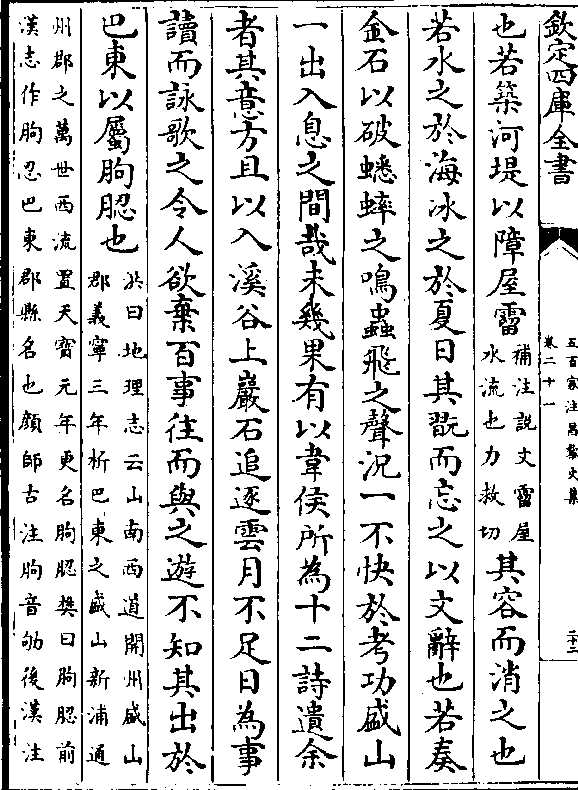 欽定四庫全書
五百家注昌黎文集
卷二十一
也若築河堤以障屋霤
補注說文霤屋
水流也力救切
其容而消之也
若水之於海冰之於夏日其翫而忘之以文辭也若奏
金石以破蟋蟀之鳴蟲飛之聲況一不快於考功盛山
一出入息之間哉未幾果有以韋侯所為十二詩遺余
者其意方且以入溪谷上巖石追逐雲月不足日為事
讀而詠歌之令人欲棄百事往而與之遊不知其出於
巴東以屬朐䏰也
洪曰地理志云山南西道開州盛山
郡義寧三年析巴東之盛山新浦通
州郡之萬世西流置天寶元年更名朐䏰樊曰朐䏰前
漢志作朐忍巴東郡縣名也顔師古注朐音劬後漢注